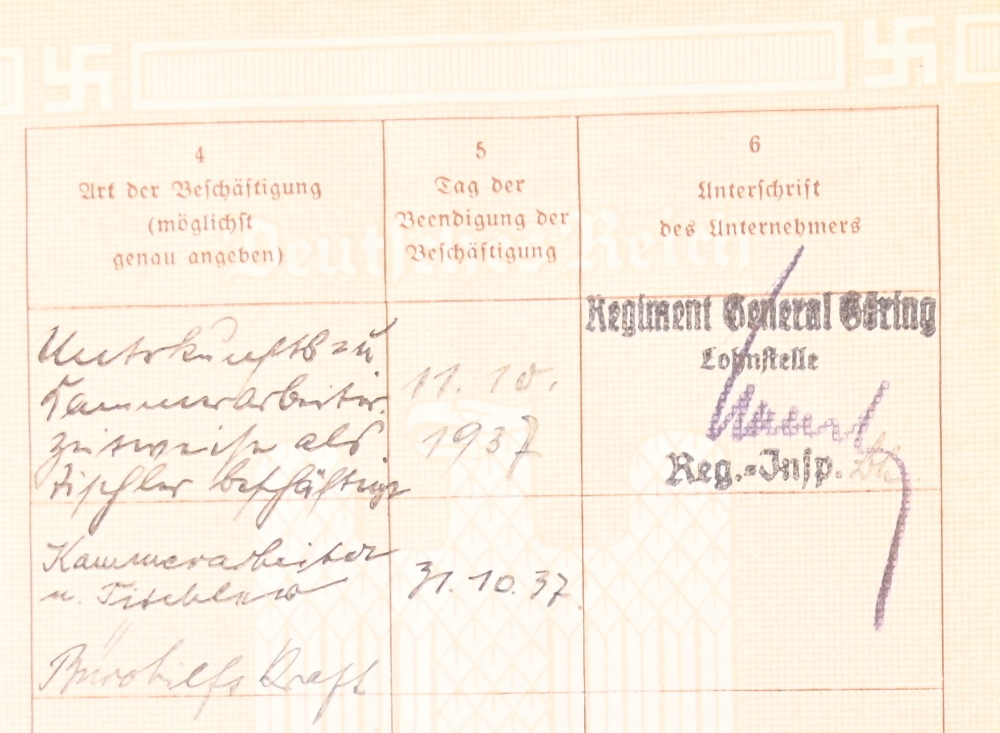 4
Art der Beschäftigung
(möglichst
genau angeben)
5
Tag der
Beendigung der
Beschäftigung
6
Unterschrift
des Unternehmers
Deutsches Reich
Unterkunfts= u
Kammerarbeiter.
zeitweise als
Tischler beschäftigt
11. 10.
1937
Regiment General Göring
Lohnstelle
Reg.=Insp.
Kammerarbeiter
u. Tischler
31. 10. 37.
Bürohilfskraft